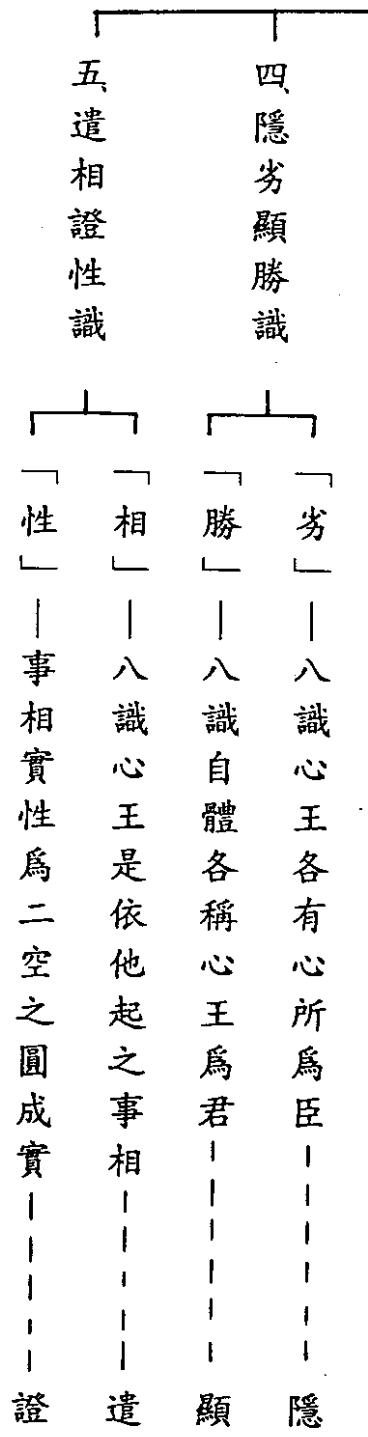 四、隱劣顯勝識
「劣」—八識心王各有心所爲臣-----隱
「勝」—八識自體各稱心王爲君-----顯
五、遣相證性識
「相」—八識心王是依他起之事相----遣
「性」—事相實性爲二空之圓成實-----證